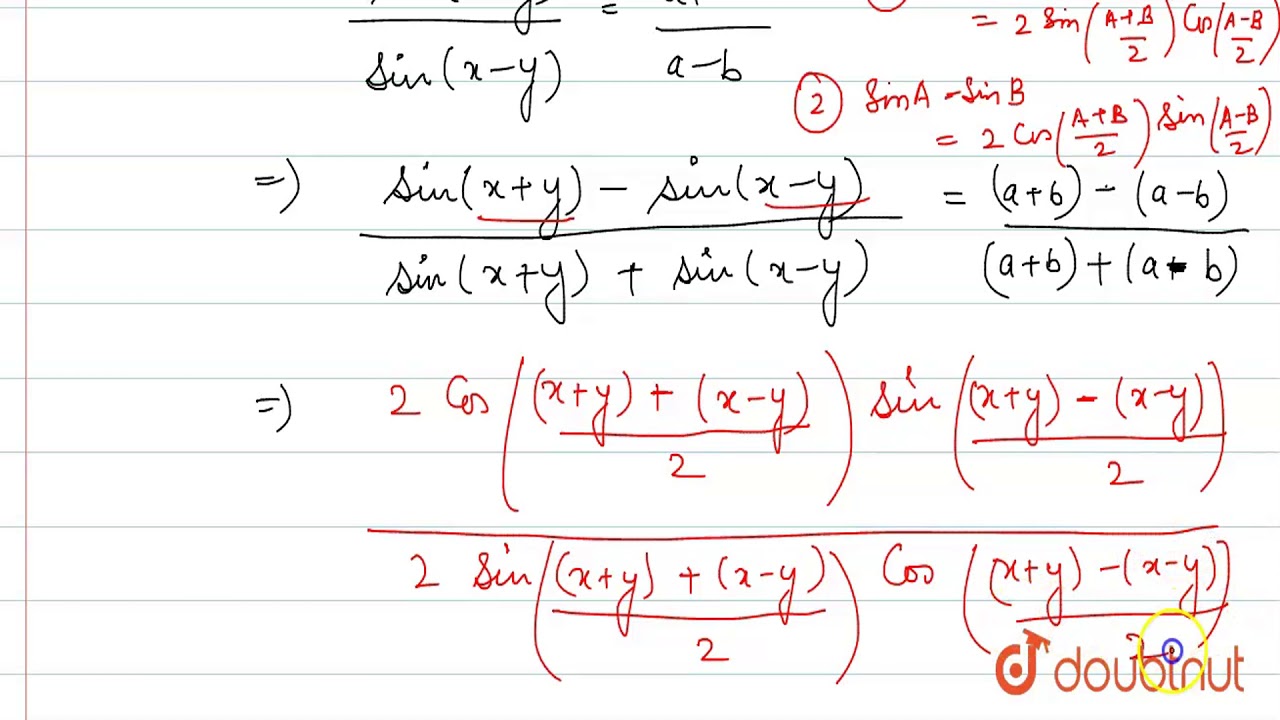 sin(x-y) = a-b
= 2 Sin(A+B/2) Cos(A-B/2)
2 SinA - SinB
= 2 Cos(A+B/2) Sin(A-B/2)
=) sin(x+y) - sin(x-y) = (a+b) - (a-b)
sin(x+y) + sin(x-y) (a+b) + (a-b)
=) 2 Cos((x+y) + (x-y)/2) sin((x+y) - (x-y)/2)
2 Sin((x+y) + (x-y)/2) Cos((x+y) - (x-y)/2)
doubtnut